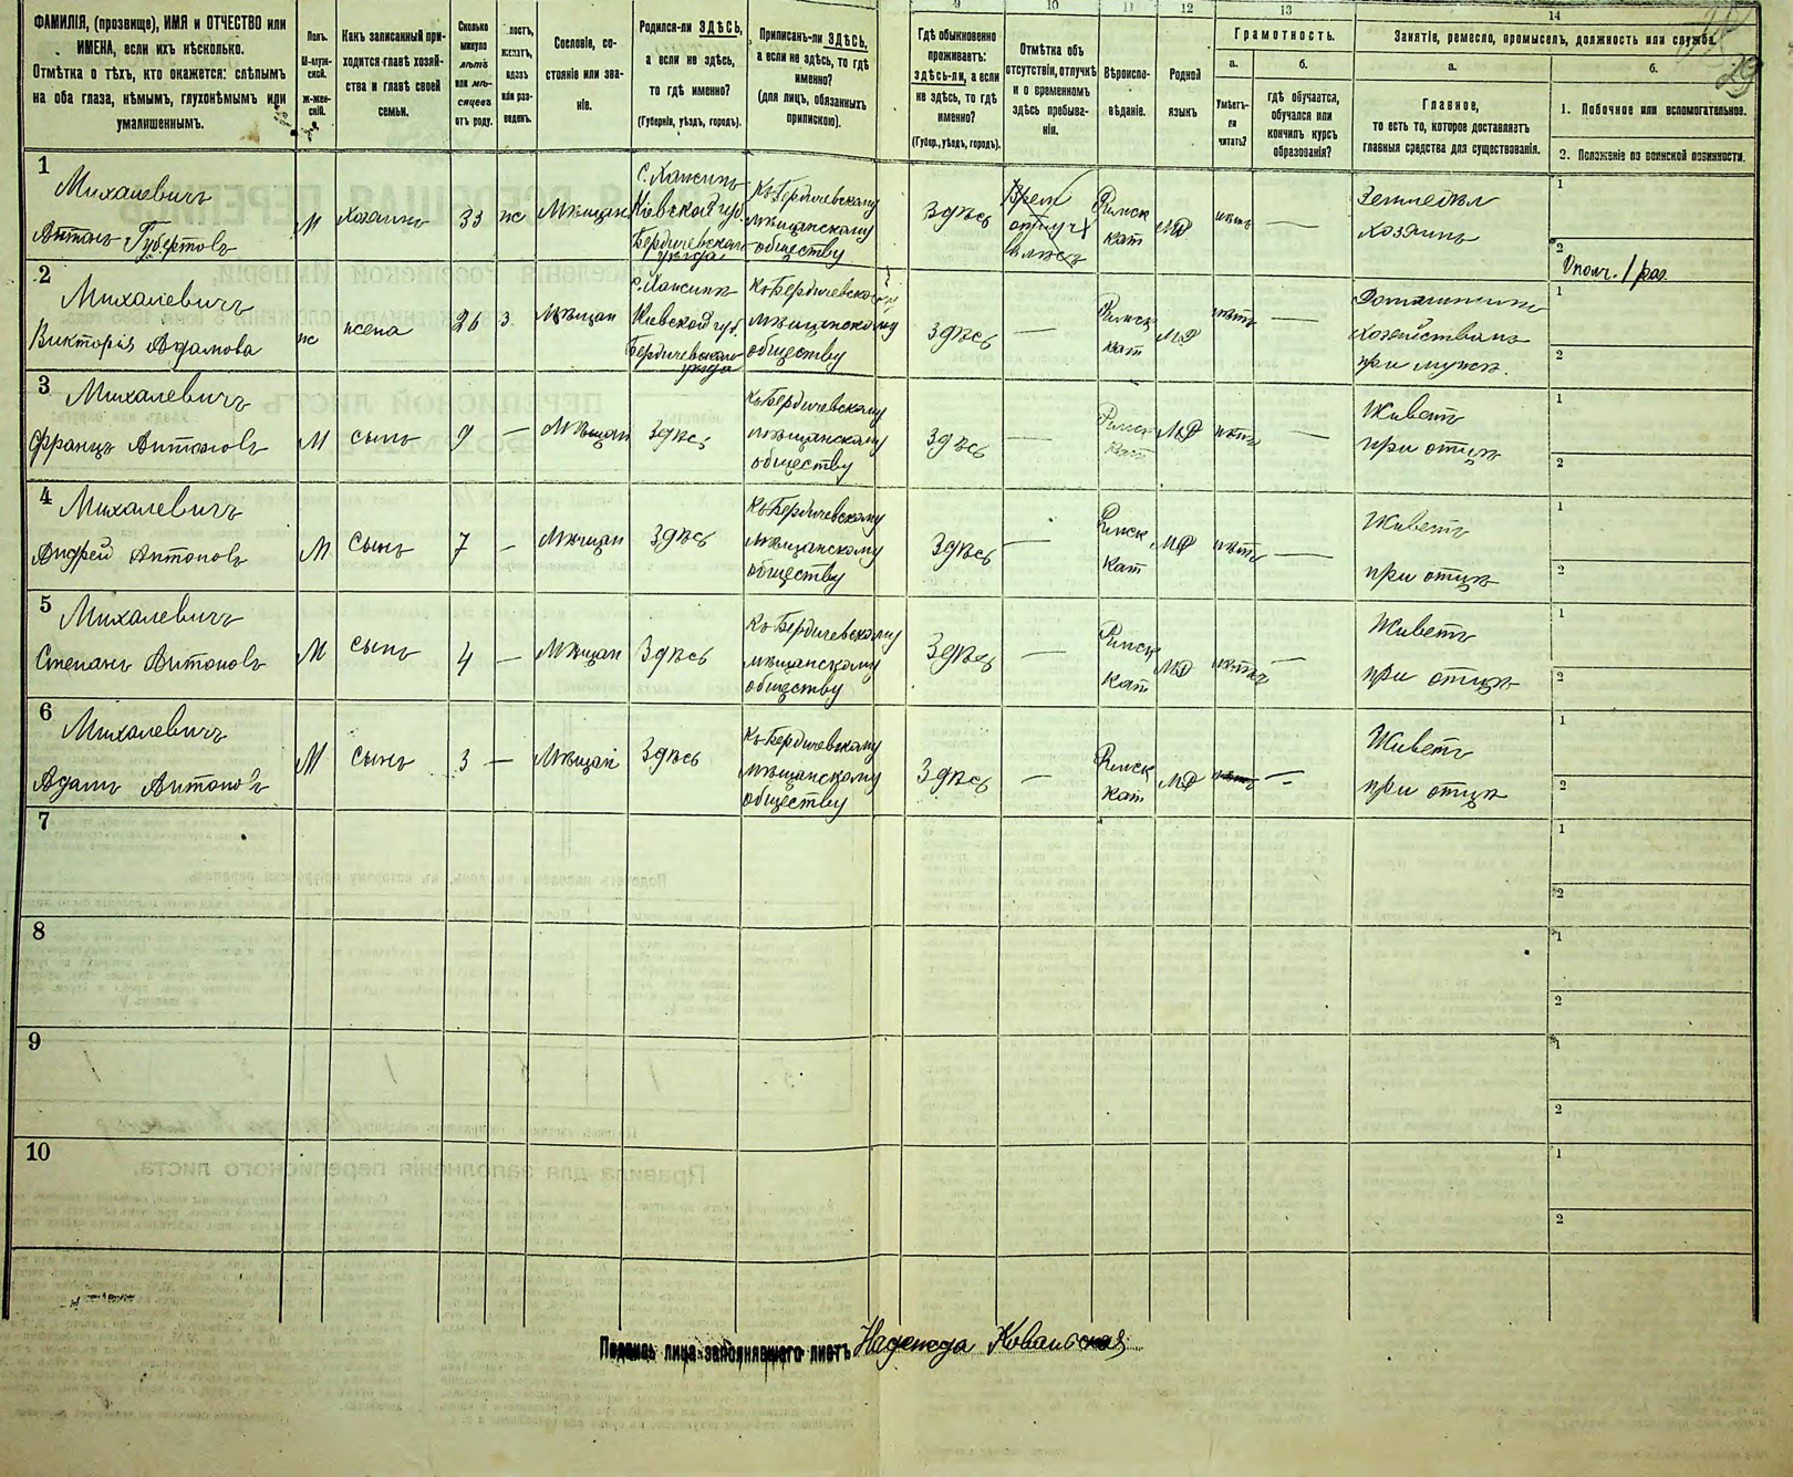 9 10 11 12 13 14
ФАМИЛІЯ, (прозвище), ИМЯ и ОТЧЕСТВО или
ИМЕНА, если ихъ нѣсколько.
Отмѣтка о тѣхъ, кто окажется: слѣпымъ
на оба глаза, нѣмымъ, глухонѣмымъ или
умалишеннымъ.
Полъ.
М-муж-
ской.
ж-жен-
скій.
Какъ записанный при-
ходится главѣ хозяй-
ства и главѣ своей
семьи.
Сколько
минуло
лѣтъ
или мѣ-
сяцевъ
отъ роду.
лостъ,
женатъ,
вдовъ
или раз-
веденъ.
Сословіе, со-
стояніе или зва-
ніе.
Родился-ли ЗДѢСЬ,
а если не здѣсь,
то гдѣ именно?
(Губернія, уѣздъ, городъ).
Приписанъ-ли ЗДѢСЬ,
а если не здѣсь, то гдѣ
именно?
(для лицъ, обязанныхъ
припискою).
Гдѣ обыкновенно
проживаетъ:
здѣсь-ли, а если
не здѣсь, то гдѣ
именно?
(Губер., уѣздъ, городъ).
Отмѣтка объ
отсутствіи, отлучкѣ
и о временномъ
здѣсь пребыва-
ніи.
Вѣроиспо-
вѣданіе.
Родной
языкъ
Грамотность.
а.
Умѣетъ-
ли
читать?
б.
гдѣ обучается,
обучался или
кончилъ курсъ
образованія?
Занятіе, ремесло, промыселъ, должность или служба.
29
а.
Главное,
то есть то, которое доставляетъ
главныя средства для существованія.
б.
1. Побочное или вспомогательное.
2. Положеніе по воинской повинности.
1
Михалевичъ
Антонъ Губертовъ
М
хозяинъ
33
же
Мѣщан
Кіевской губ.
Бердичевскаго
уѣзда
Къ Бердичевскому
мѣщанскому
обществу
Здѣсь
Римск
кат
нѣтъ
—
Земледѣл
хозяинъ
1
2
2
Михалевичъ
Викторія Адамова
же
жена
26
з
Мѣщан
Кіевской губ.
Бердичевскаго
уѣзда
Къ Бердичевскому
мѣщанскому
обществу
здѣсь
—
Римск
кат
нѣтъ
—
хозяйствомъ
при мужѣ.
1
2
3
Михалевичъ
Францъ Антоновъ
М
сынъ
9
—
Мѣщан
Здѣсь
Къ Бердичевскому
мѣщанскому
обществу
Здѣсь
—
Римск
кат
нѣтъ
—
Живетъ
при отцѣ
1
2
4
Михалевичъ
Андрей Антоновъ
М
сынъ
7
—
Мѣщан
Здѣсь
Къ Бердичевскому
мѣщанскому
обществу
Здѣсь
—
Римск
кат
нѣтъ
—
Живетъ
при отцѣ
1
2
5
Михалевичъ
Степанъ Антоновъ
М
сынъ
4
—
Мѣщан
Здѣсь
Къ Бердичевскому
мѣщанскому
обществу
Здѣсь
—
Римск
кат
нѣтъ
—
Живетъ
при отцѣ
1
2
6
Михалевичъ
Адамъ Антоновъ
М
сынъ
3
—
Мѣщан
Здѣсь
Къ Бердичевскому
мѣщанскому
обществу
Здѣсь
—
Римск
кат
нѣтъ
—
Живетъ
при отцѣ
1
2
7
1
2
8
1
2
9
1
2
10
1
2
Подпись лица заполнявшаго листъ Надежда Ковальская